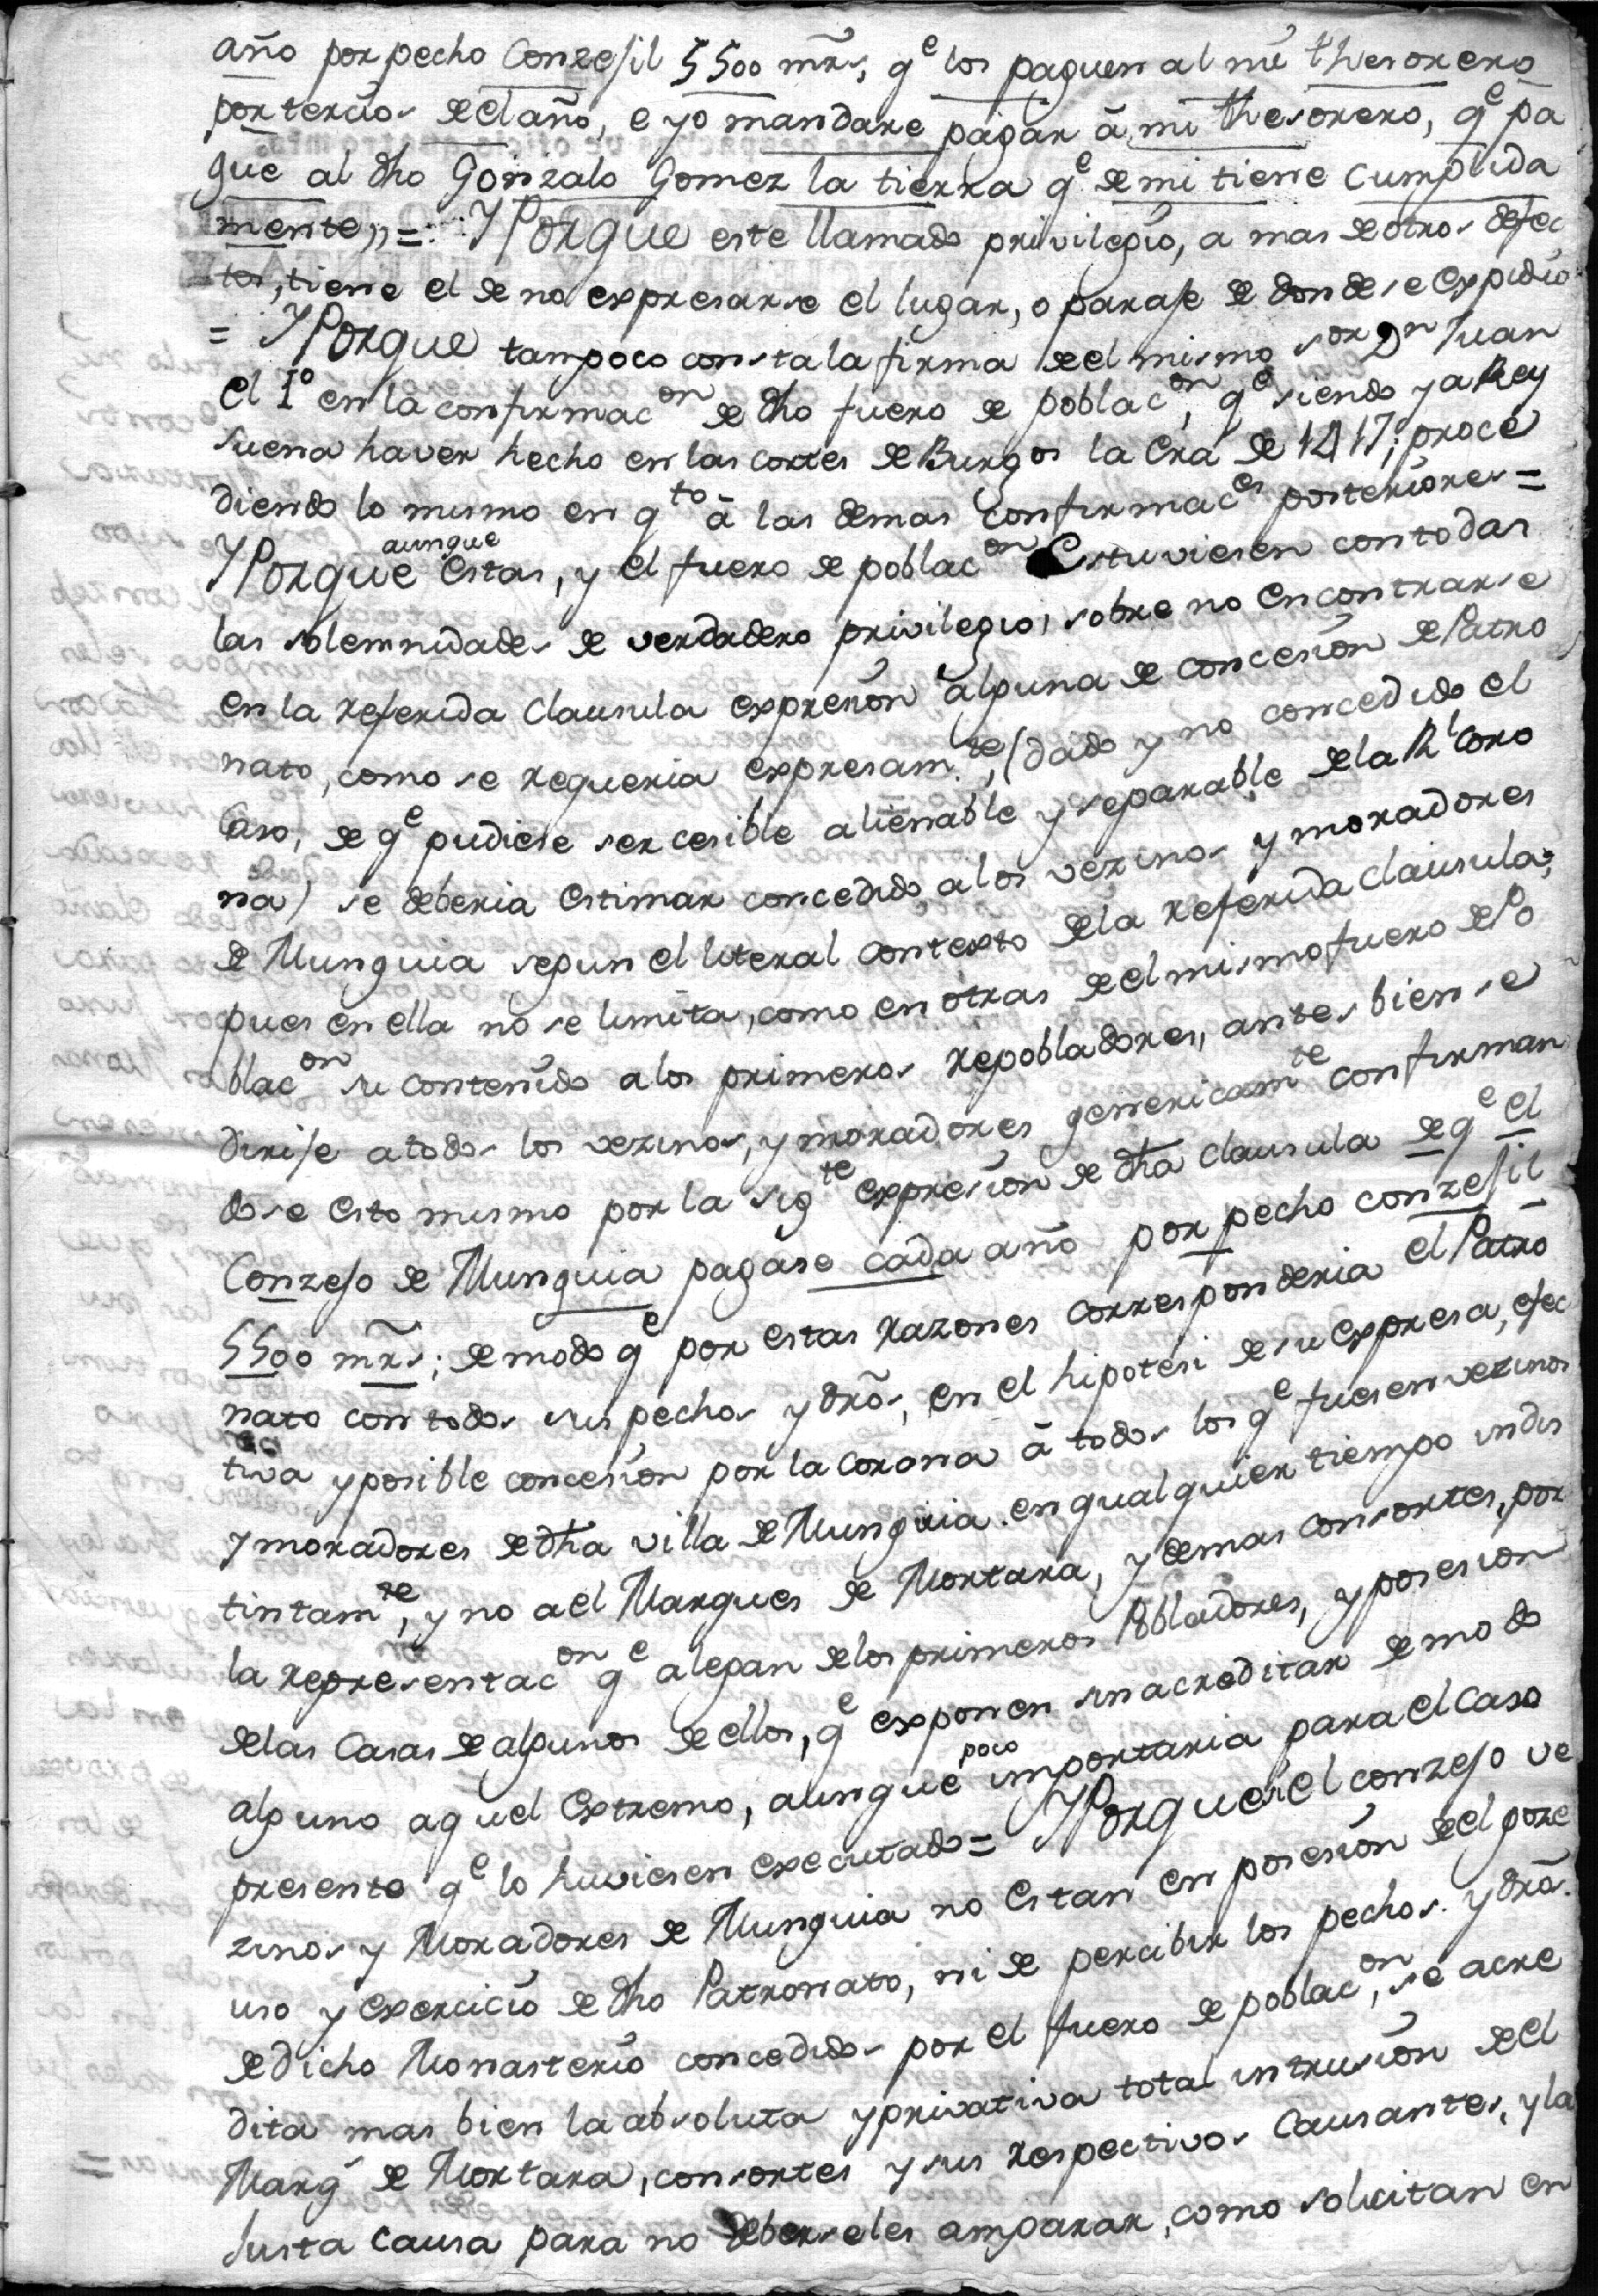 año por pecho Conzejil 5500 mrs, qe los paguen al mi thesorero
por tercios de el año, e yo mandare pagar â mi thesorero, qe pa
gue al dho Gonzalo Gomez la tierra qe de mi tiene cumplida
mente,,=: YPorque este llamado privilegio, a mas de otros defec
tos, tiene el de no expresarse el lugar, o paraje de donde se expidio
= YPorque tampoco consta la firma de el mismo sor Dn Juan
el 1º en la confirmacon de dho fuero de poblacon, qe siendo ya Rey
suena haver hecho en las cortes de Burgos la Era de 1417; proce
diendo lo mismo en qto â las demas confirmaces posteriores=
YPorque aunque estas, y el fuero de poblacon Estuviesen con todas
las solemnidades de verdadero privilegio, sobre no encontrarse
en la referida clausula expresion alguna de concesion de Patro
nato, como se requeria expresamte, (dado y no concedido el
caso, de qe pudiese ser cesible alienable y separable de la Rl Coro
na) se deberia estimar concedido a los vezinos y moradores
de Munguia segun el literal contexto de la referida clausula;
pues en ella no se limita, como en otras de el mismo fuero de Po
blacon su contenido a los primeros repobladores, antes bien se
dirije a todos los vezinos, y moradores genericamte confirman
dose esto mismo por la sigte expresion de dha clausula de qe el
Conzejo de Munguia pagase cada año por pecho conzejil
5500 mrs; de modo qe por estas razones corresponderia el Patro
nato con todos sus pechos y dros, en el hipotesi de su expresa, efec
tiva y posible concesion por la corona â todos los qe fuesen vezinos
y moradores de dha villa de Munguia en qualquier tiempo indis
tintamte, y no a el Marques de Mortara, y demas consortes, por
la representacon qe alegan de los primeros Pobladores, y posesion
de las Casas de algunos de ellos, qe exponen sin acreditar de modo
alguno aquel extremo, aunque poco importaria para el caso
presente qe lo huviesen executado= YPorque si el conzejo ve
zinos y Moradores de Munguia no estan en posesion de el goze
uso y exercicio de dho Patronato, ni de percibir los pechos y dros
de dicho Monasterio concedidos por el fuero de poblacon, se acre
dita mas bien la absoluta y privativa total intrusion de el
Marq de Mortara, consortes y sus respectivos Causantes, y la
justa causa para no deberseles amparar, como solicitan en